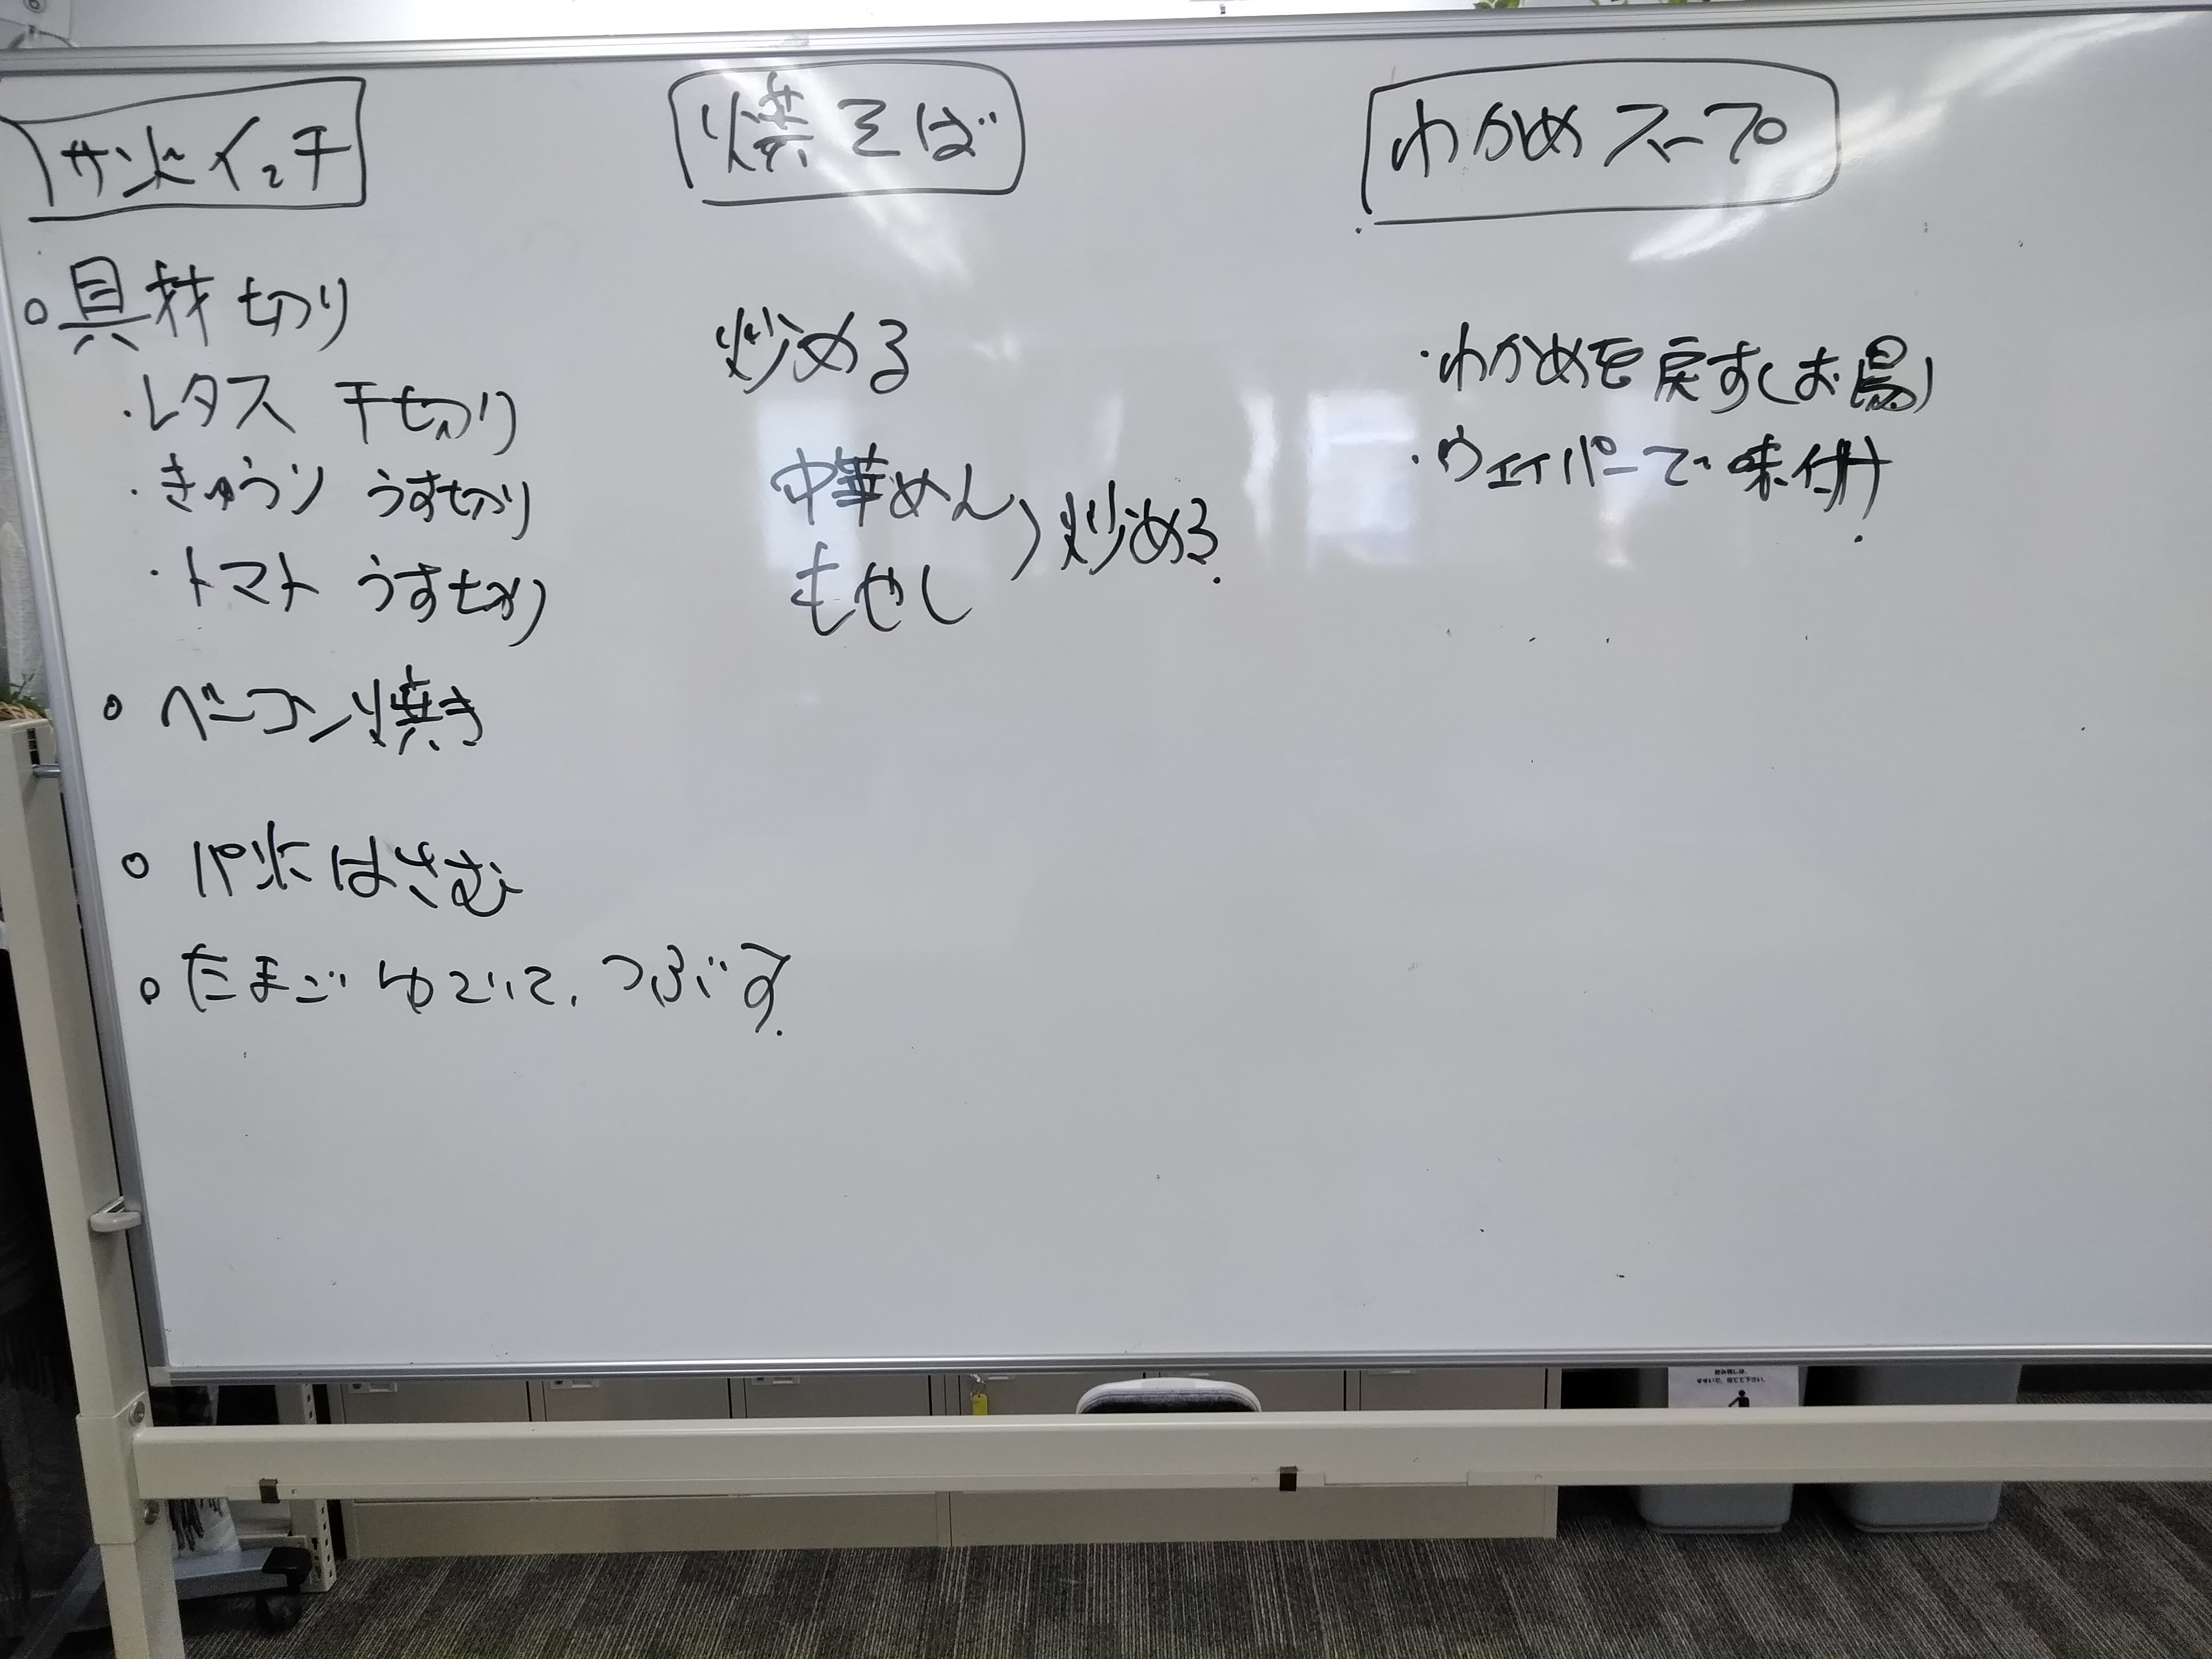 サンドイッチ
○具材切り
・レタス 千切り
・きゅうり うす切り
・トマト うす切り
○ベーコン焼き
○パンにはさむ
○たまごゆでて、つぶす。
焼そば
炒める
中華めん
もやし
）炒める。
わかめスープ
・わかめを戻す(お湯)
・ウェイパーで味付け。
飲み残しは、
すすいで、捨てて下さい。